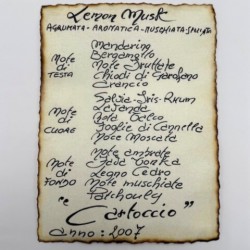 Lemon Musk
AGRUMATA - AROMATICA - MUSCHIATA - SPEZIATA
Mandarino
Bergamotto
Note di TESTA
Note Fruttate
Chiodi di Garofano
Arancio
Salvia - Iris - Rhum
Lavanda
Note di CUORE
Foglie di Cannella
Noce Moscata
Note ambrate
Note di FONDO
Fava Tonka
Legno Cedro
Note muschiate
Patchouly
"e Cartoccio"
anno: 2007